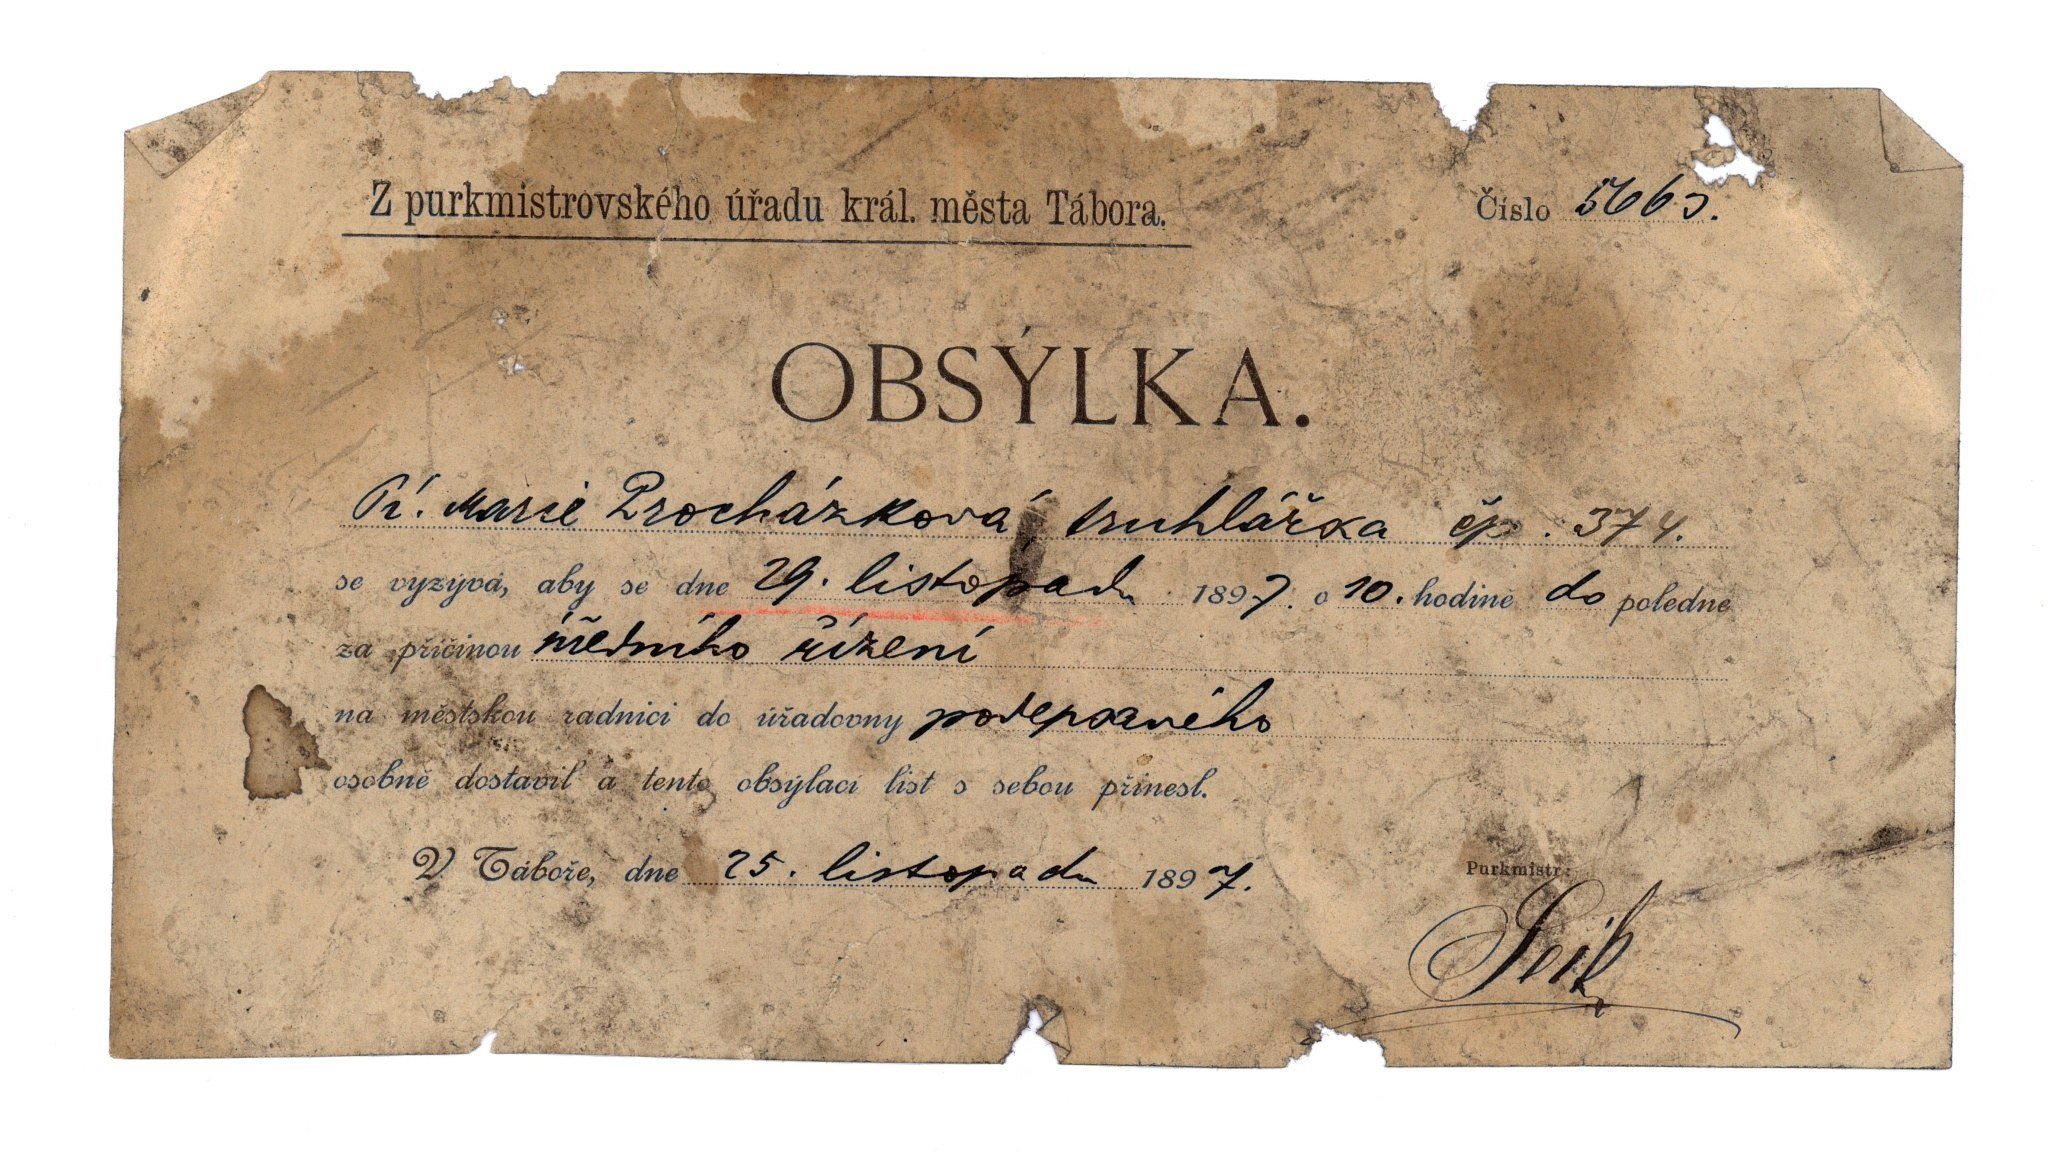 Z purkmistrovského úřadu král. města Tábora.
Číslo 5663.
OBSÝLKA.
Pí. Marie Procházková, truhlářka čp. 374.
se vyzývá, aby se dne 29. listopadu 1897. o 10. hodině do poledne
za příčinou úředního řízení
na městskou radnici do úřadovny podepsaného
osobně dostavil a tento obsýlací list s sebou přinesl.
V Táboře, dne 25. listopadu 1897.
Purkmistr: